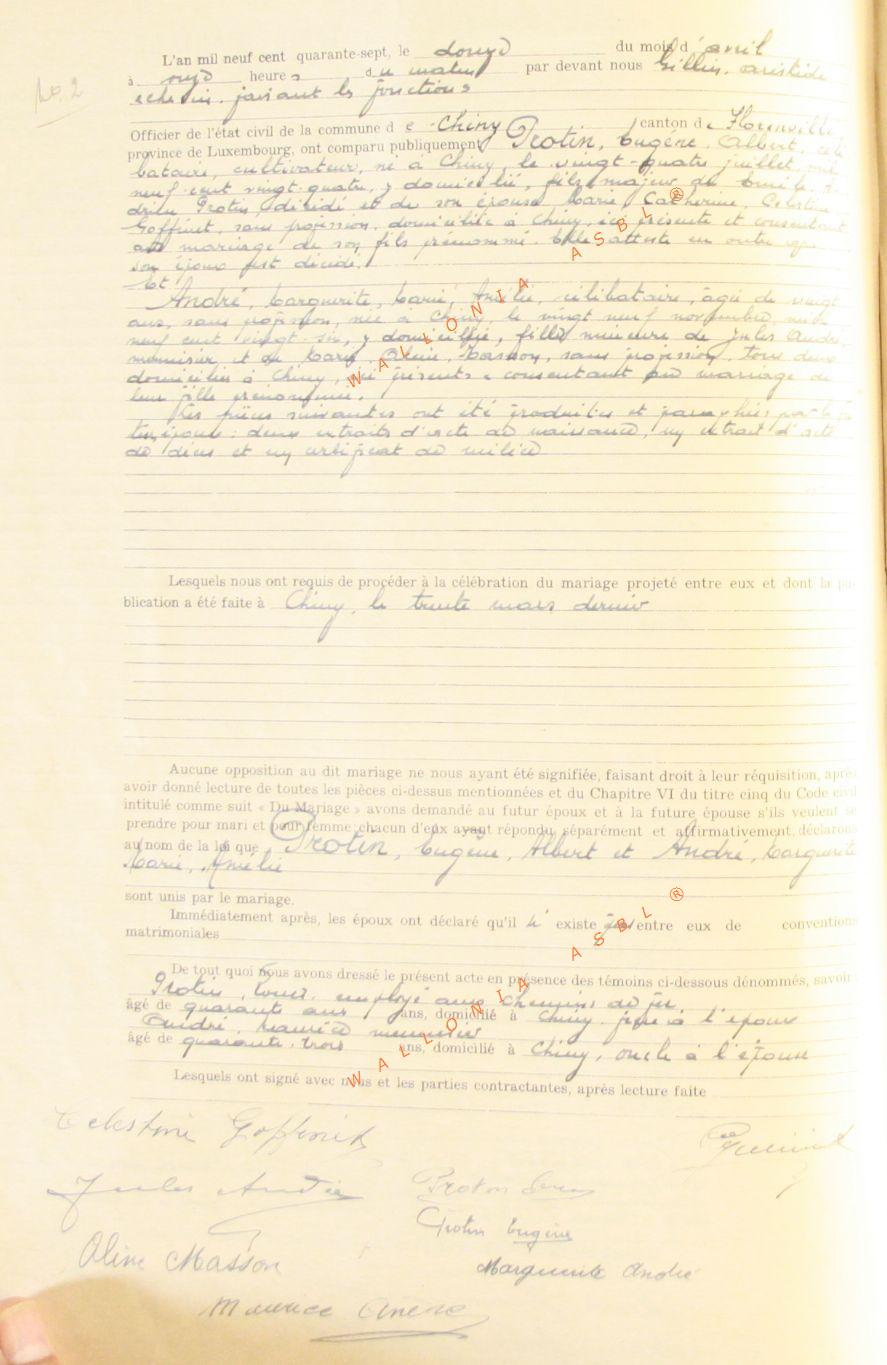 No. 2
L'an mil neuf cent quarante-sept, le douze du mois d'avril
à onze heures du matin par devant nous Gillin, Aristide
échevin, faisant les fonctions
Officier de l'état civil de la commune de Chiny canton de Florenville
province de Luxembourg, ont comparu publiquement Protin, Eugène, Albert, céli
bataire, cultivateur, né à Chiny, le vingt-quatre juillet, mil
neuf cent vingt-quatre, y domicilié, fils majeur de Emile, A
drien Protin, décédé et de son épouse Marie, Catherine, Célestine
Goffinet, sans profession, domiciliée à Chiny, ici présente et consentant
au mariage de son fils prénommé. Elle atteste en outre que
son époux est décédé.
Et
André, Marguerite, Marie, Amélie, célibataire, âgée de vingt
ans, sans profession, née à Chiny, le vingt neuf novembre, mil
neuf cent vingt-six, y domiciliée, fille mineure de Jules André,
menuisier et de Marie, Aline, Masson, sans profession, tous deux
domiciliés à Chiny, ici présents et consentant au mariage de
leur fille prénommée.
Les pièces suivantes ont été produites et paraphées par les fu
turs époux : deux extraits d'acte de naissance, un extrait d'acte
de décès et un certificat de milice
Lesquels nous ont requis de procéder à la célébration du mariage projeté entre eux et dont la pu
blication a été faite à Chiny, le trente mars dernier
Aucune opposition au dit mariage ne nous ayant été signifiée, faisant droit à leur réquisition, après
avoir donné lecture de toutes les pièces ci-dessus mentionnées et du Chapitre VI du titre cinq du Code civil
intitulé comme suit « Du Mariage » avons demandé au futur époux et à la future épouse s'ils veulent se
prendre pour mari et pour femme chacun d'eux ayant répondu séparément et affirmativement, déclarons
au nom de la loi que Protin, Eugène, Albert et André, Marguerite
Marie, Amélie
sont unis par le mariage.
Immédiatement après, les époux ont déclaré qu'il n'existe pas entre eux de conventions
matrimoniales
De tout quoi nous avons dressé le présent acte en présence des témoins ci-dessous dénommés, savoir
Protin, employé aux chemins de fer
âgé de quarante ans ans, domicilié à Chiny, à l'époux
André, Maurice menuisier
âgé de quarante-trois ans, domicilié à Chiny, oncle à l'épouse
Lesquels ont signé avec nous et les parties contractantes, après lecture faite
Celestine Goffinet
Jules André
Protin
Protin Eugène
Aline Masson
Marguerite André
Maurice André
WALLONIA ASBL ®
WALLONIA ASBL ®